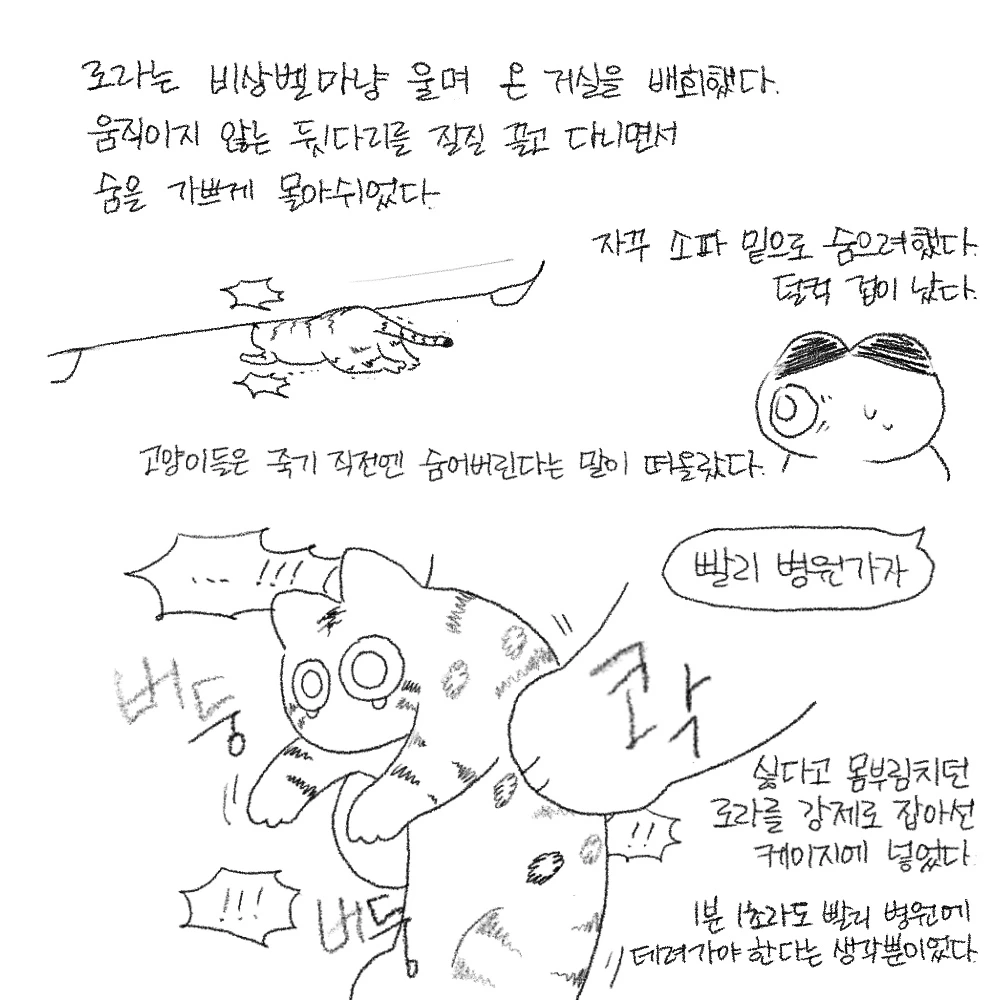 로라는 비상벨마냥 울며 온 거실을 배회했다.
움직이지 않는 뒷다리를 질질 끌고 다니면서
숨을 가쁘게 몰아쉬었다.
자꾸 소파 밑으로 숨으려했다.
덜컥 겁이 났다.
고양이들은 죽기 직전엔 숨어버린다는 말이 떠올랐다.
... !!!
빨리 병원가자
버둥
콱
싫다고 몸부림치던
로라를 강제로 잡아선
케이지에 넣었다
!!
!!!
버둥
1분 1초라도 빨리 병원에
데려가야 한다는 생각뿐이었다